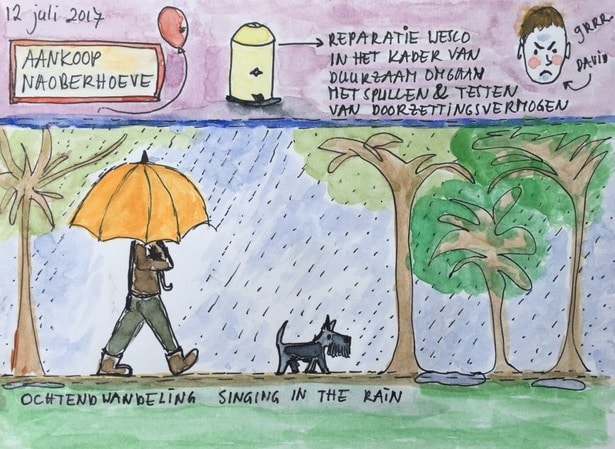 12 juli 2017
AANKOOP
NAOBERHOEVE
REPARATIE WESCO
IN HET KADER VAN
DUURZAAM OMGAAN
MET SPULLEN & TESTEN
VAN DOORZETTINGSVERMOGEN
GRRR
DAVID
OCHTENDWANDELING SINGING IN THE RAIN